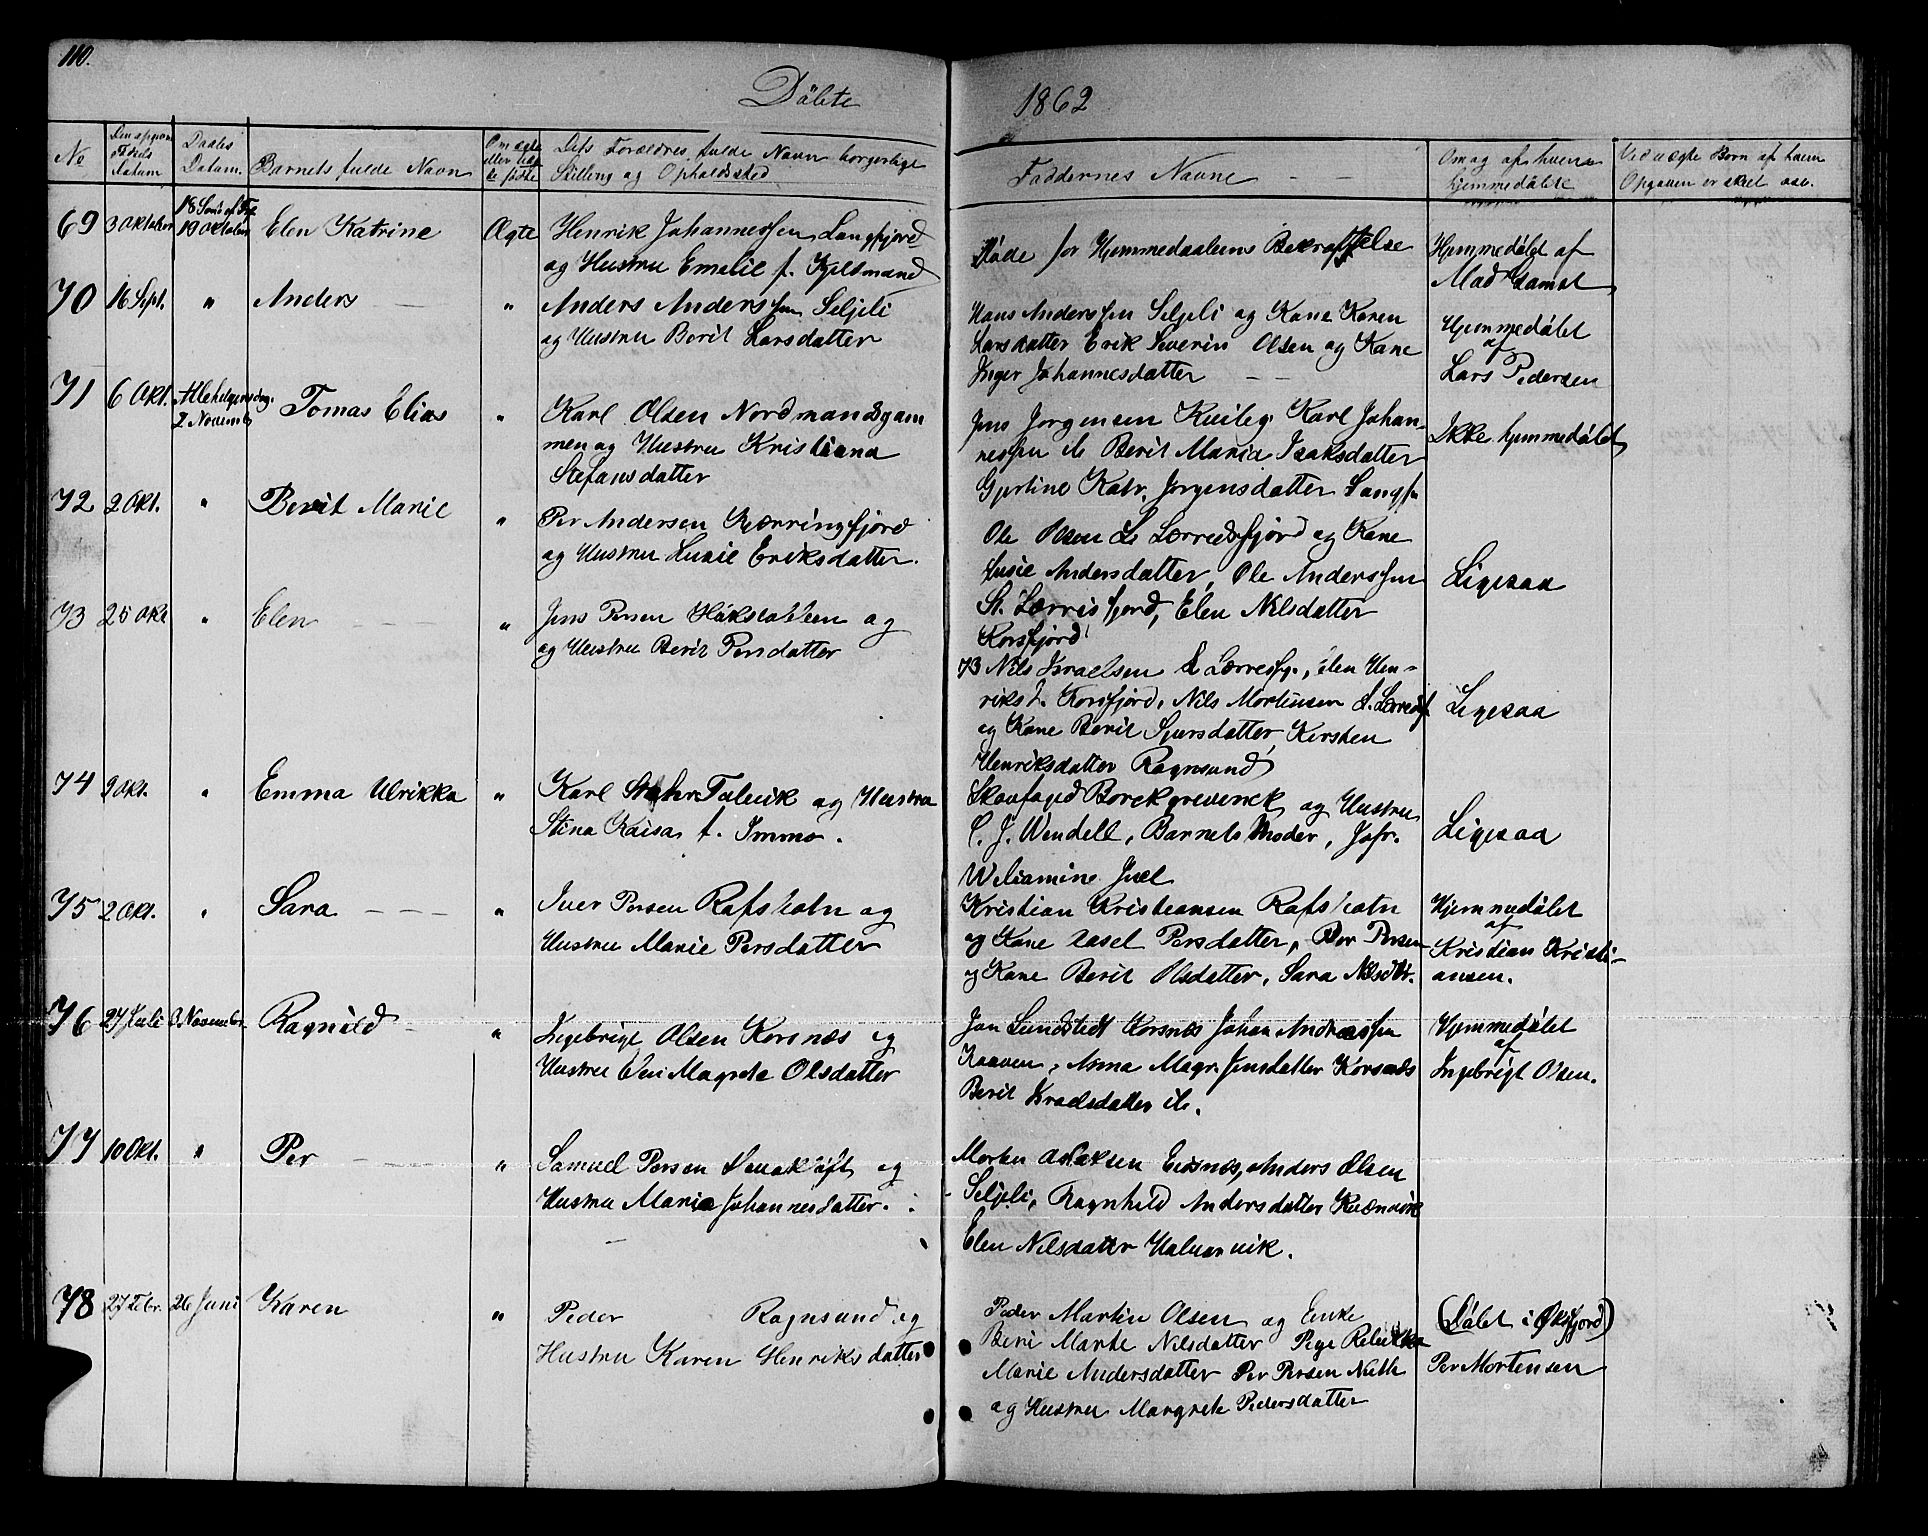 110.
Döbte 1862
No
Den opgivne Fødsels datum
Daabs Datum.
Barnets fulde Navn
Om ægte eller uægte fødte
Dets Forældres fulde Navn borgerlige Stilling og Opholdssted
Faddernes Navne
Om og af hvem hjemmedøbte
Ved uægte Børn af hvem Opgaven er skeet osv.
69 3 Oktober 18 Sönd. ef. Tref. 19 Oktober Elen Katrine Ægte Henrik Johannessen Langfjord
og Hustru Emelie f. Kjeldmand
Møde for Hjemmedaabens Bekræftelse
Hjemmedøbt af
Mad
70 16 Sept. " Anders " Anders Anderssen Seljeli
og Hustru Berit Larsdatter
Hans Anderssen Seljeli og Kone Karen
Larsdatter Erik Severin Olsen og Kone
Inger Johannesdatter
Hjemmedøbt
af
Lars Pedersen
71 6 Okt. Allehelgensdag. 2 Novemb Tomas Elias " Karl Olsen Nordmandsgam
men og Hustru Kristiana
Stefansdatter
Jens Jorgensen Kviteg. Karl Johan-
nessen ib Berit Maria Isaksdatter
Gjertine Katr. Jorgensdatter Langfj
Ikke hjemmedøbt
72 2 Okt. " Berit Marie " Per Andersen Kjærringfjord
og Hustru Lusie Eriksdatter.
Ole Olsen L. Lerredsfjord og Kone
Lusie Andersdatter, Ole Anderssen
St. Lerrisfjord, Elen Nilsdatter
Korsfjord
Ligesaa
73 25 Okt " Elen " Jens Persen Hakstabben og
og Hustru Berit Persdatter
73 Nils Israelsen L Lerredsfj., Elen Hen-
riksd. Korsfjord, Nils Mortensen L. Lerredsf
og Kone Berit Sjursdatter Kersten
Henriksdatter Rognsund
Ligesaa
74 9 Okt. " Emma Ulrikka " Karl Talvik og Hustru
Stina Kaisa f. Immo.
Skovfoged Borchgrevinck og Hustru
C. J. Wendell, Barnets Moder, Jofr.
Wiliamine Juel
Ligesaa
75 2 Okt. " Sara " Iver Persen Rafsbotn og
Hustru Marie Persdatter
Kristian Kristiansen Rafsbotn
og Kone Persdatter, Per Persen
og Kone Berit Olsdatter, Sara Nilsdtr.
Hjemmedøbt
af
Kristian Kristi-
ansen.
76 27 Juli 3 Novembr. Ragnild " Ingebrigt Olsen Korsnæs og
Hustru Eva Magreta Olsdatter
Jon Lundstedt Korsnæs Johan Andreassen
Kaaven, Anna Magr. Jensdatter Korsnæs
Berit Israelsdatter ib.
Hjemmedøbt
af
Ingebrigt Olsen.
77 10 Okt. " Per " Samuel Persen og
Hustru Maria Johannesdatter.
Morten Aslaksen Eidsnes, Anders Olsen
Seljeli, Ragnhild Andersdatter Kvænvik
Elen Nilsdatter Halvarvik.
78 27 Febr. 26 Juni Karen " Peder Rognsund og
Hustru Karen Henriksdatter
Peder Martin Olsen og Enke
Berit Marte Nilsdatter Pige Rebekka
Marie Andersdatter Per Persen
og Hustru Margrete Pedersdatter
(Døbt i Øksfjord)
Per Mortensen